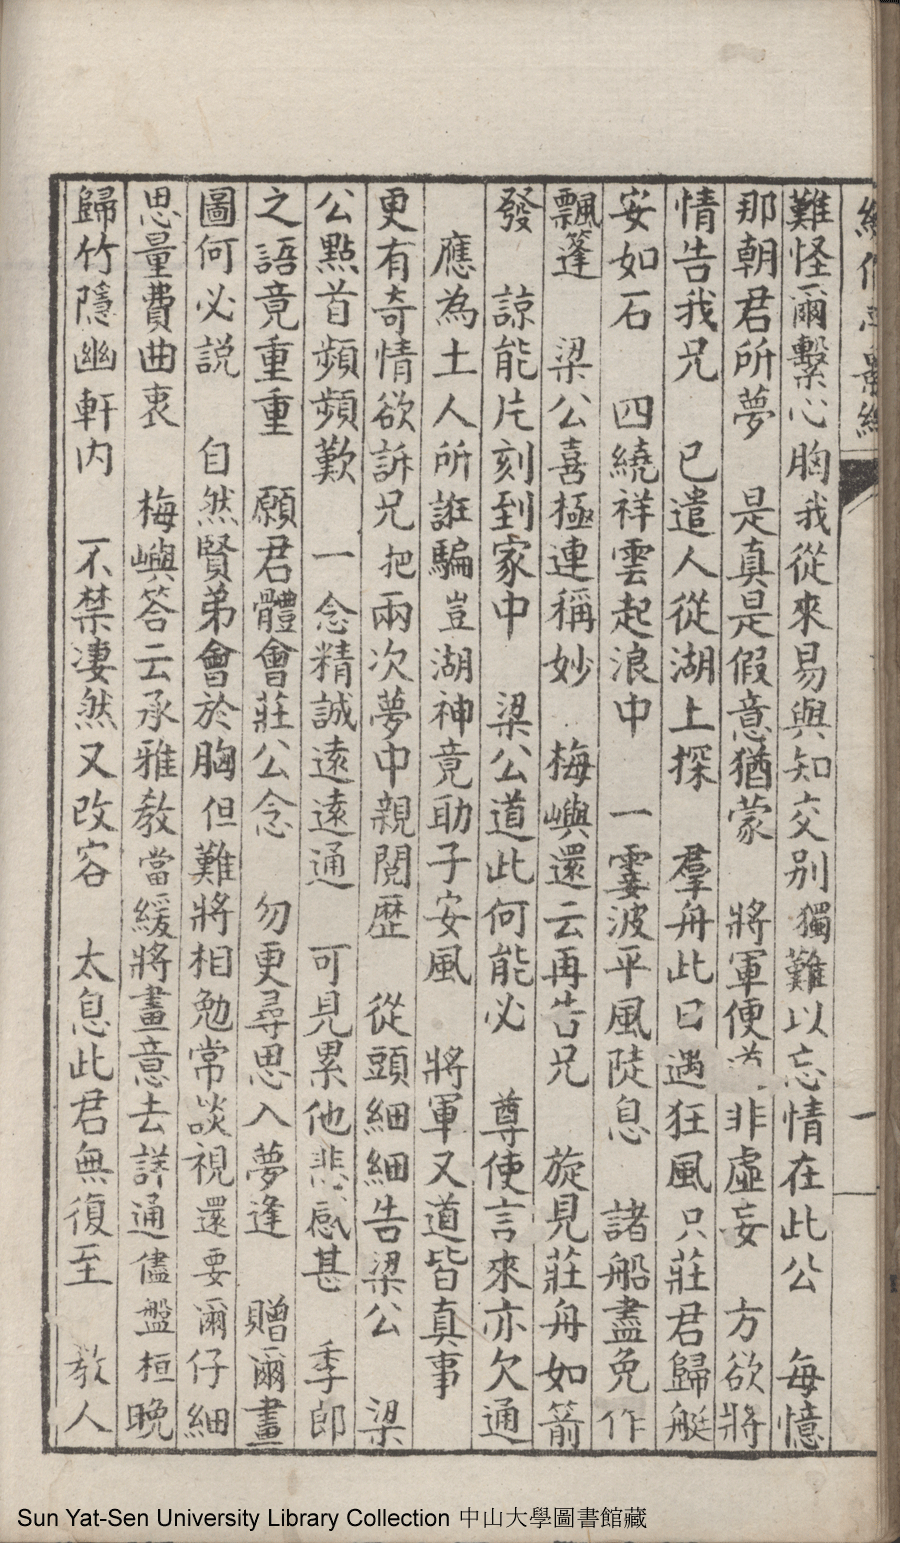 難怪爾繫心胸我從來易與知交别獨難以忘情在此公　每憶
那朝君所夢　是真是假意猶蒙　將軍便道非虛妄　方欲將
情告我兄　已遣人從湖上探　羣舟此日遇狂風只莊君歸艇
安如石　四繞祥雲起浪中　一霎波平風陡息　諸船盡免作
飄篷　梁公喜極連稱妙　梅嶼還云再告兄　旋見莊舟如箭
發　諒能片刻到家中　梁公道此何能必　尊使言來亦欠通
應為土人所誑騙豈湖神竟助子安風　將軍又道皆真事
更有奇情欲訴兄把兩次夢中親閱歷　從頭細細告梁公　梁
公點首頻頻歎　一念精誠遠遠通　可見累他悲感甚　季郎
之語竟重重　願君體會莊公念　勿更尋思入夢逢　贈爾畫
圖何必説　自然賢弟會於胸但難將相勉常談視還要爾仔細
思量費曲衷　梅嶼答云承雅教當緩將畫意去詳通儘盤桓晚
歸竹隱幽軒内　不禁凄然又改容　太息此君無復至　教人
一
Sun Yat-Sen University Library Collection 中山大學圖書館藏